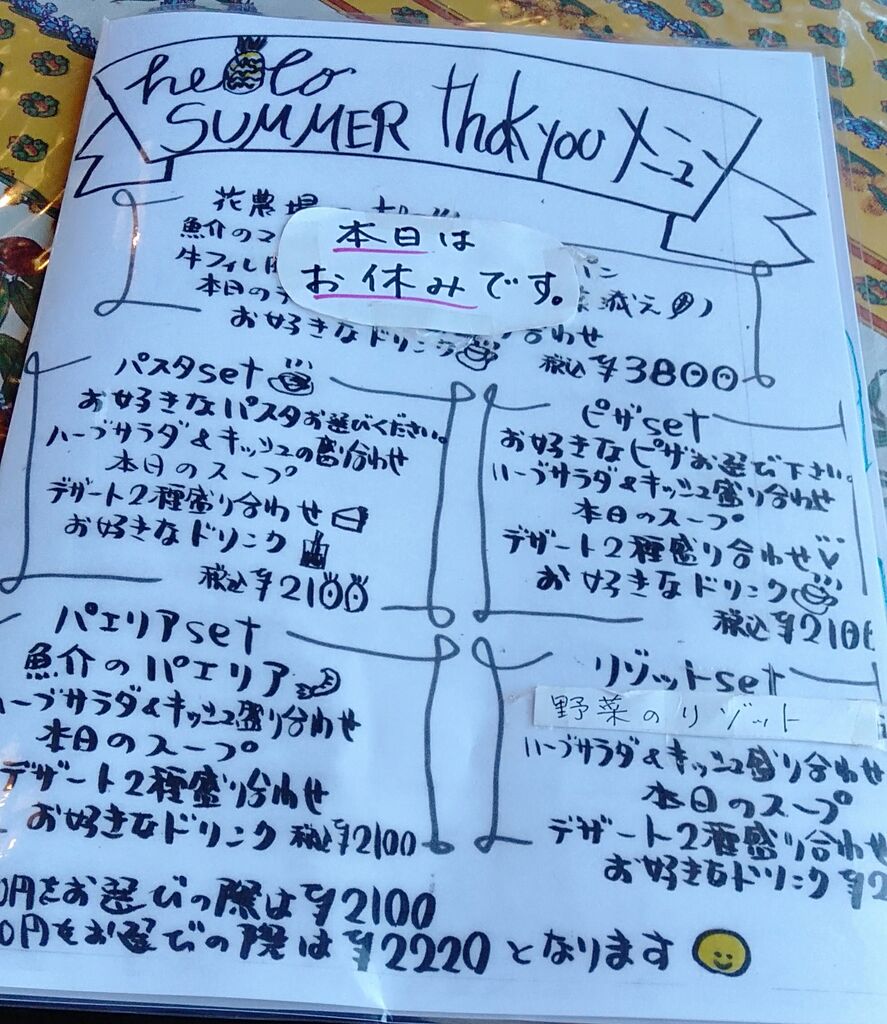 hello
SUMMER thank you メニュー
花農場
魚介の
本日は
牛フィレ
お休みです。
本日の
添え
お好きなドリンク
合わせ
税込 ¥3800
パスタset
お好きなパスタお選びください。
ハーブサラダ&キッシュの盛り合わせ
本日のスープ
デザート2種盛り合わせ
お好きなドリンク
税込 ¥2100
ピザset
お好きなピザお選び下さい。
ハーブサラダ&キッシュ盛り合わせ
本日のスープ
デザート2種盛り合わせ
お好きなドリンク
税込 ¥2100
パエリアset
魚介のパエリア
ハーブサラダ&キッシュ盛り合わせ
本日のスープ
デザート2種盛り合わせ
お好きなドリンク 税込 ¥2100
リゾットset
野菜のリゾット
ハーブサラダ&キッシュ盛り合わせ
本日のスープ
デザート2種盛り合わせ
お好きなドリンク ¥2
0円をお選びの際は ¥2100
0円をお選びの際は ¥2220 となります